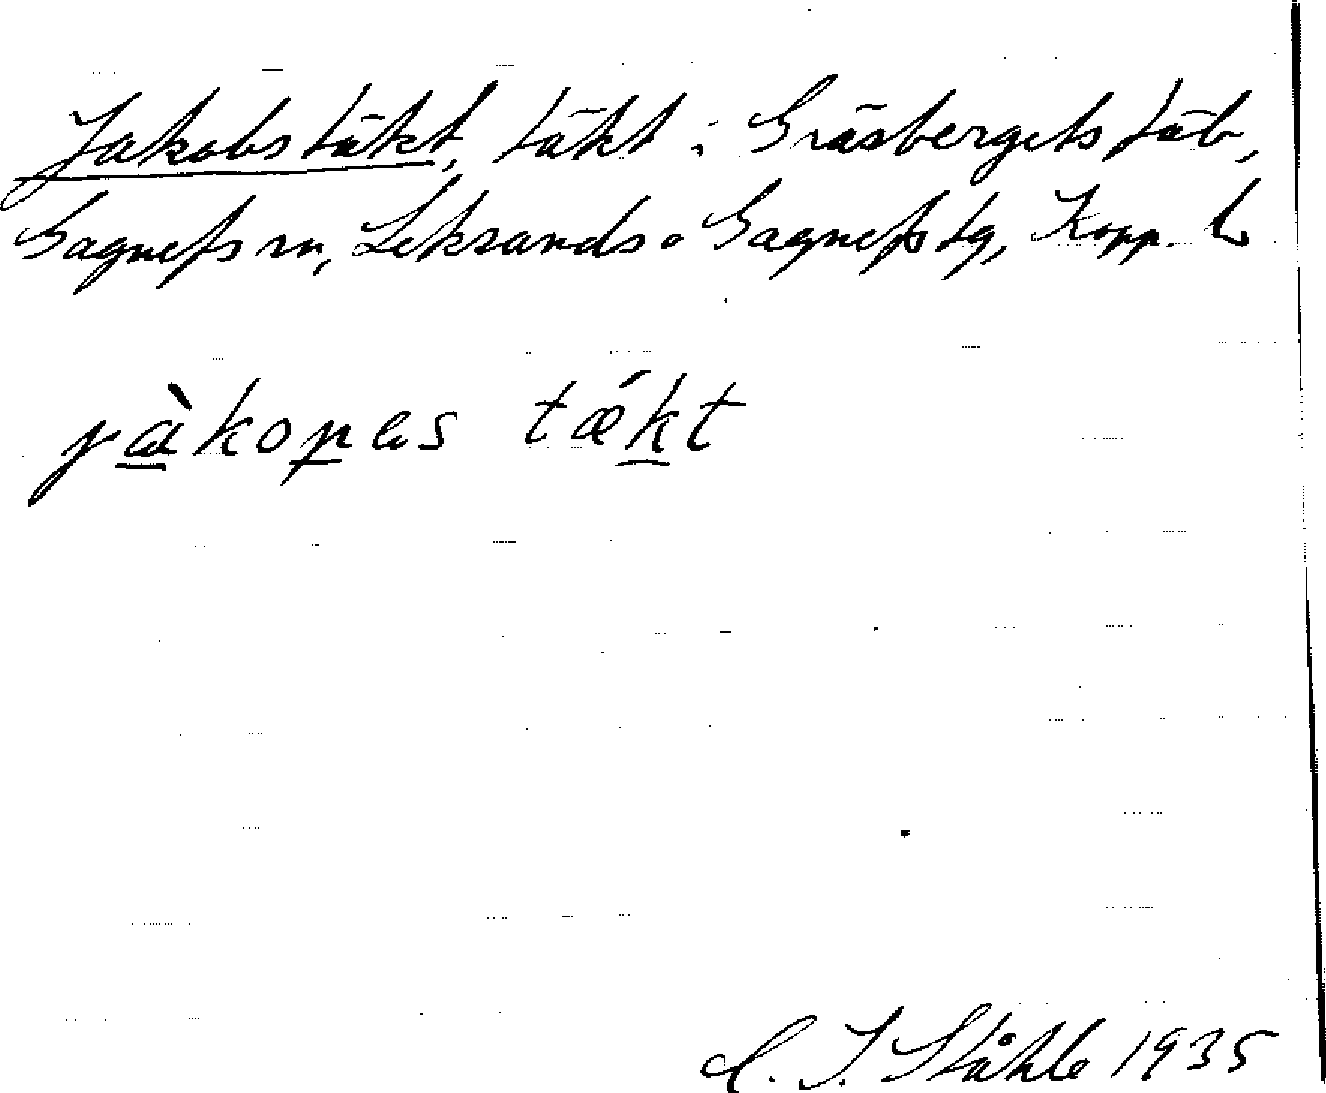 Jakobstäkt, täkt i Gräsbergets fäb,
Gagnefs sn, Leksands o Gagnefs tg, Kopp. l.
jàkopas tǽkt
C. I. Ståhle 1935